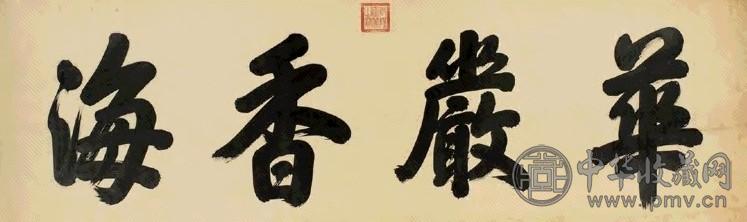 華嚴香海
中华收藏网
www.ipmv.cn